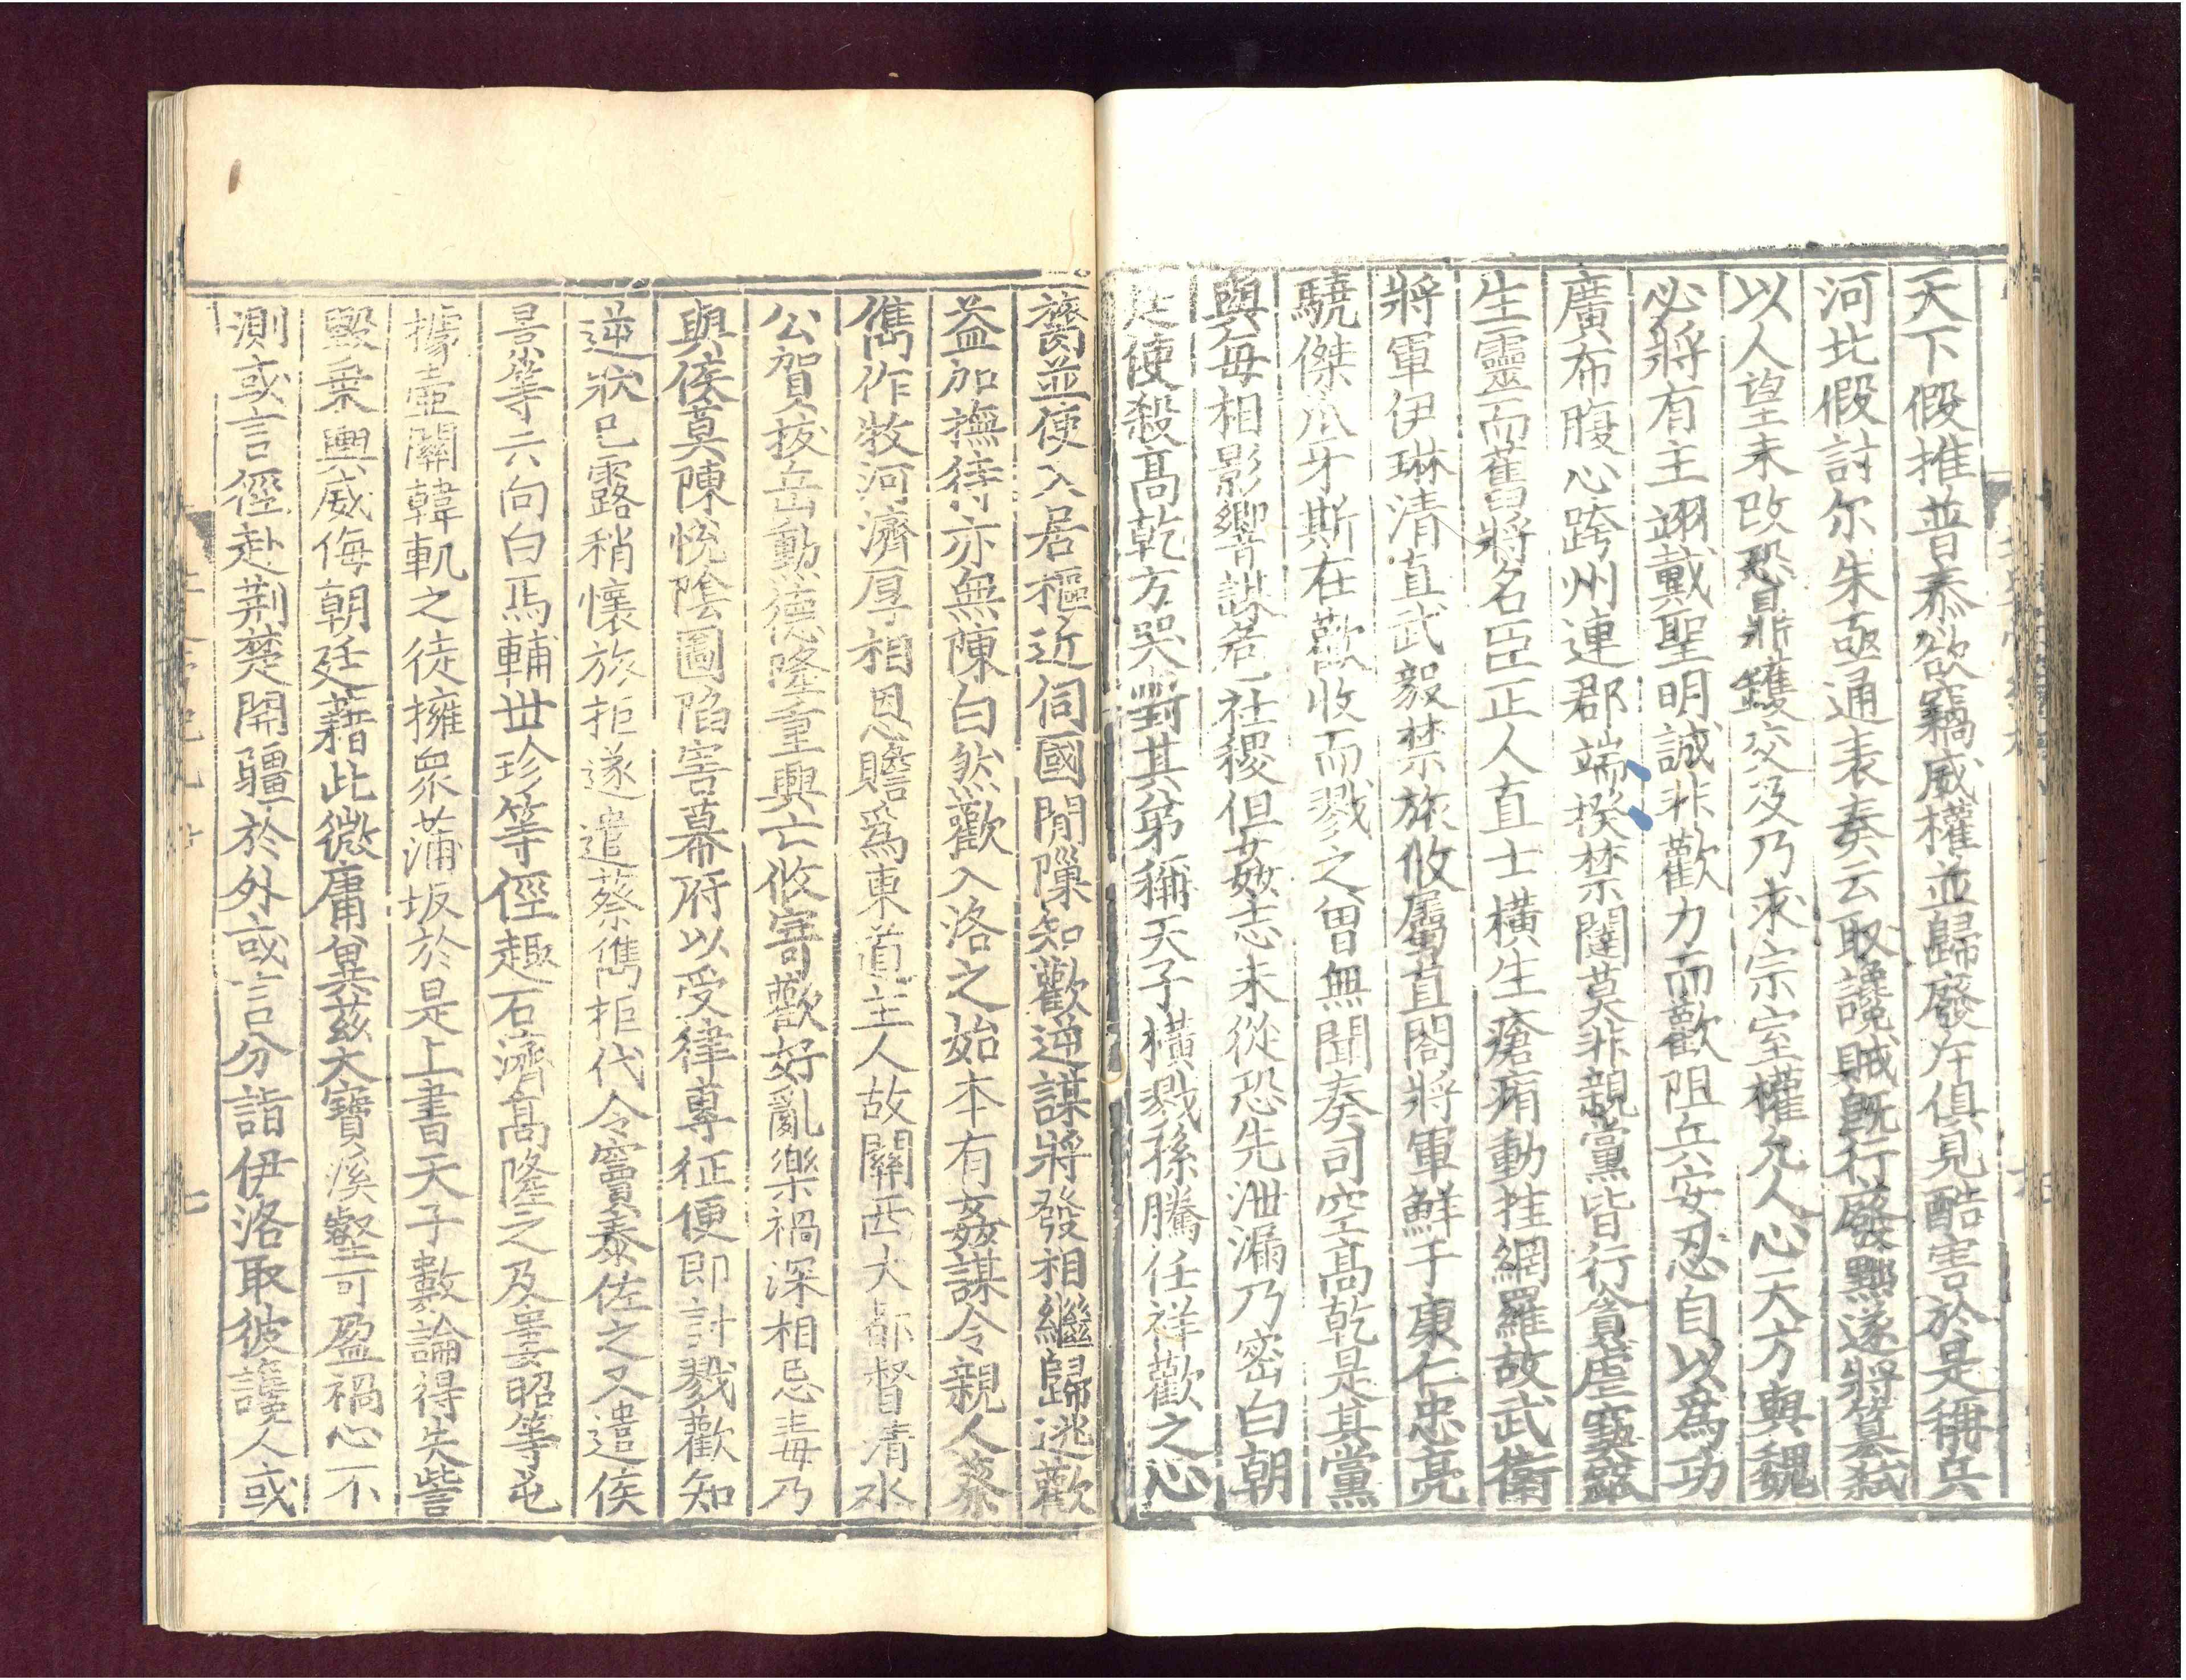 天下假推普泰欲竊威權並歸廢斥俱見酷害於是稱兵
河北假討尔朱亟通表奏云取讒賊旣行廢黜遂將簒弑
以人望未改恐鼎鑊交及乃求宗室權允人心天方與魏
必將有主翊戴聖明誠非歡力而歡阻兵安忍自以爲功
廣布腹心跨州連郡端揆禁闥莫非親黨皆行貪虐窫窳
生靈而舊將名臣正人直士橫生瘡痏動挂網羅故武衛
將軍伊琳清直武毅禁旅攸屬直閤將軍鮮于康仁忠亮
驍傑爪牙斯在歡收而戮之曽無聞奏司空高乾是其黨
與每相影響謀危社稷但姦志未從恐先泄漏乃密白朝
廷使殺高乾方哭對其弟稱天子橫戮孫騰任祥歡之心
膂並使入居樞近伺國閒隟知歡逆謀將發相繼歸逃歡
益加撫待亦無陳白然歡入洛之始本有姦謀令親人蔡
儁作牧河濟厚相恩贍爲東道主人故關西大都督清水
公賀拔岳勳德隆重興亡攸寄歡好亂樂禍深相忌毒乃
與侯莫陳悅陰圖陷害幕府以受律專征便即討戮歡知
逆狀已露稍懷旅拒遂遣蔡儁拒代令竇泰佐之又遣侯
景等云向白馬輔世珍等徑趣石濟高隆之及婁昭等屯
據壺關韓軌之徒擁衆蒲坂於是上書天子數論得失訾
毀乗輿威侮朝廷藉此微庸兾茲大寶溪壑可盈禍心不
測或言徑赴荆楚開疆於外或言分詣伊洛取彼讒人或